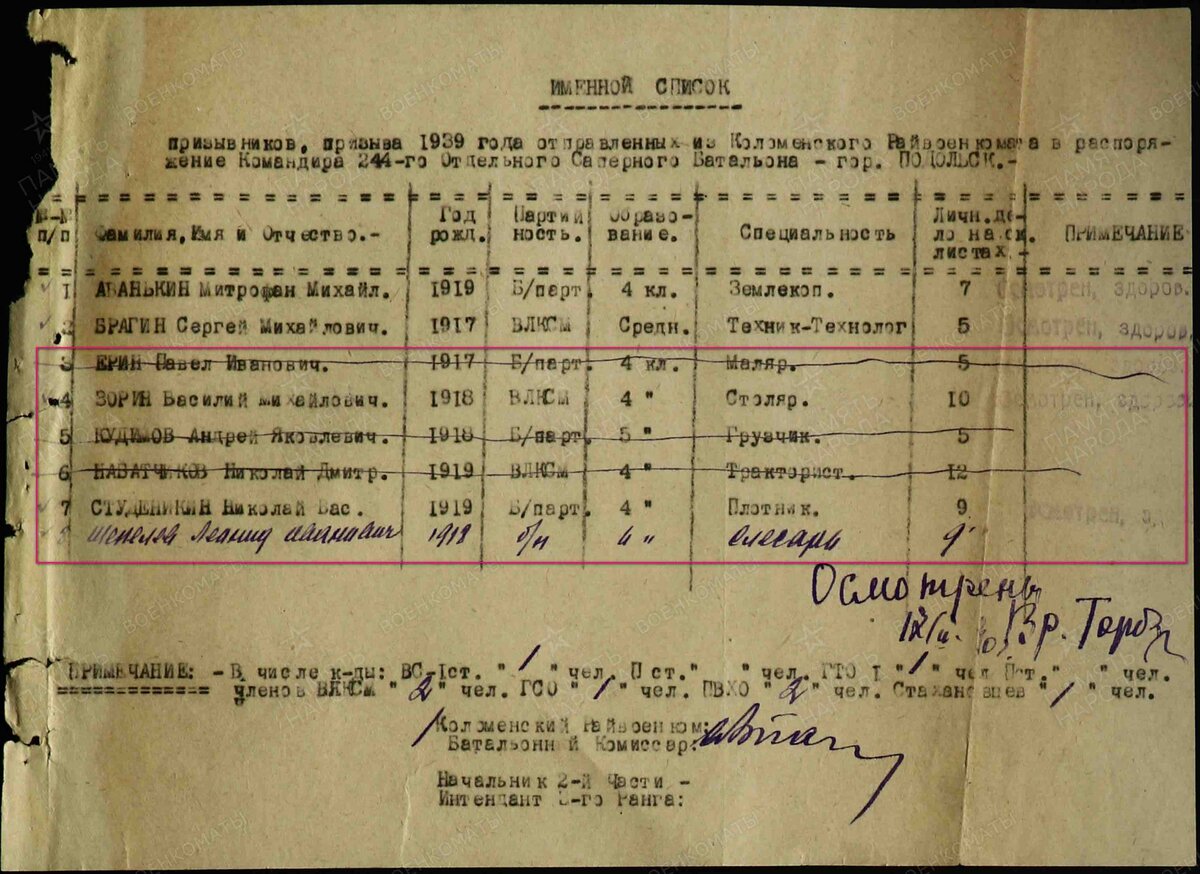 ИМЕННОЙ СПИСОК
призывников, призыва 1939 года отправленных из Коломенского Райвоенкомата в распоря-
жение Командира 244-го Отдельного Саперного Батальона - гор. ПОДОЛЬСК.-
№-№ п/п Фамилия, Имя и Отчество.- Год рожд. Партий ность. Образо- вание. Специальность Личн. де- ло на ск. листах.- ПРИМЕЧАНИЕ
1 АБАНЬКИН Митрофан Михайл. 1919 Б/парт. 4 кл. Землекоп. 7 Осмотрен, здоров.
2 БРАГИН Сергей Михайлович. 1917 ВЛКСМ Средн. Техник-Технолог 5 Осмотрен, здоров.
3 ЕРИН Павел Иванович. 1917 Б/парт. 4 кл. Маляр. 5
4 ЗОРИН Василий Михайлович. 1918 ВЛКСМ 4 " Столяр. 10 Осмотрен, здоров.
5 КУДИМОВ Андрей Яковлевич. 1918 Б/парт. 5 " Грузчик. 5
6 НАБАТЧИКОВ Николай Дмитр. 1919 ВЛКСМ 4 " Тракторист. 12
7 СТУДЕНИКИН Николай Вас. 1919 Б/парт. 4 " Плотник. 9 Осмотрен, зд
8 Шепелев Леонид Иванович 1918 б/п 4 " слесарь 9
Осмотрены
Вр.
ПРИМЕЧАНИЕ: - В числе к-ды: ВС-Iст. " 1 " чел. П ст." " чел. ГТО I " 1 " чел Пст." " чел.
членов ВЛКСМ " 2 " чел. ГСО " 1 " чел. ПВХО " 2 " чел. Стахановцев " 1 " чел.
Коломенский Райвоенком:
Батальонный Комиссар:
Начальник 2-й Части -
Интендант 3-го Ранга:
ПАМЯТЬ НАРОДА
ВОЕНКОМАТЫ